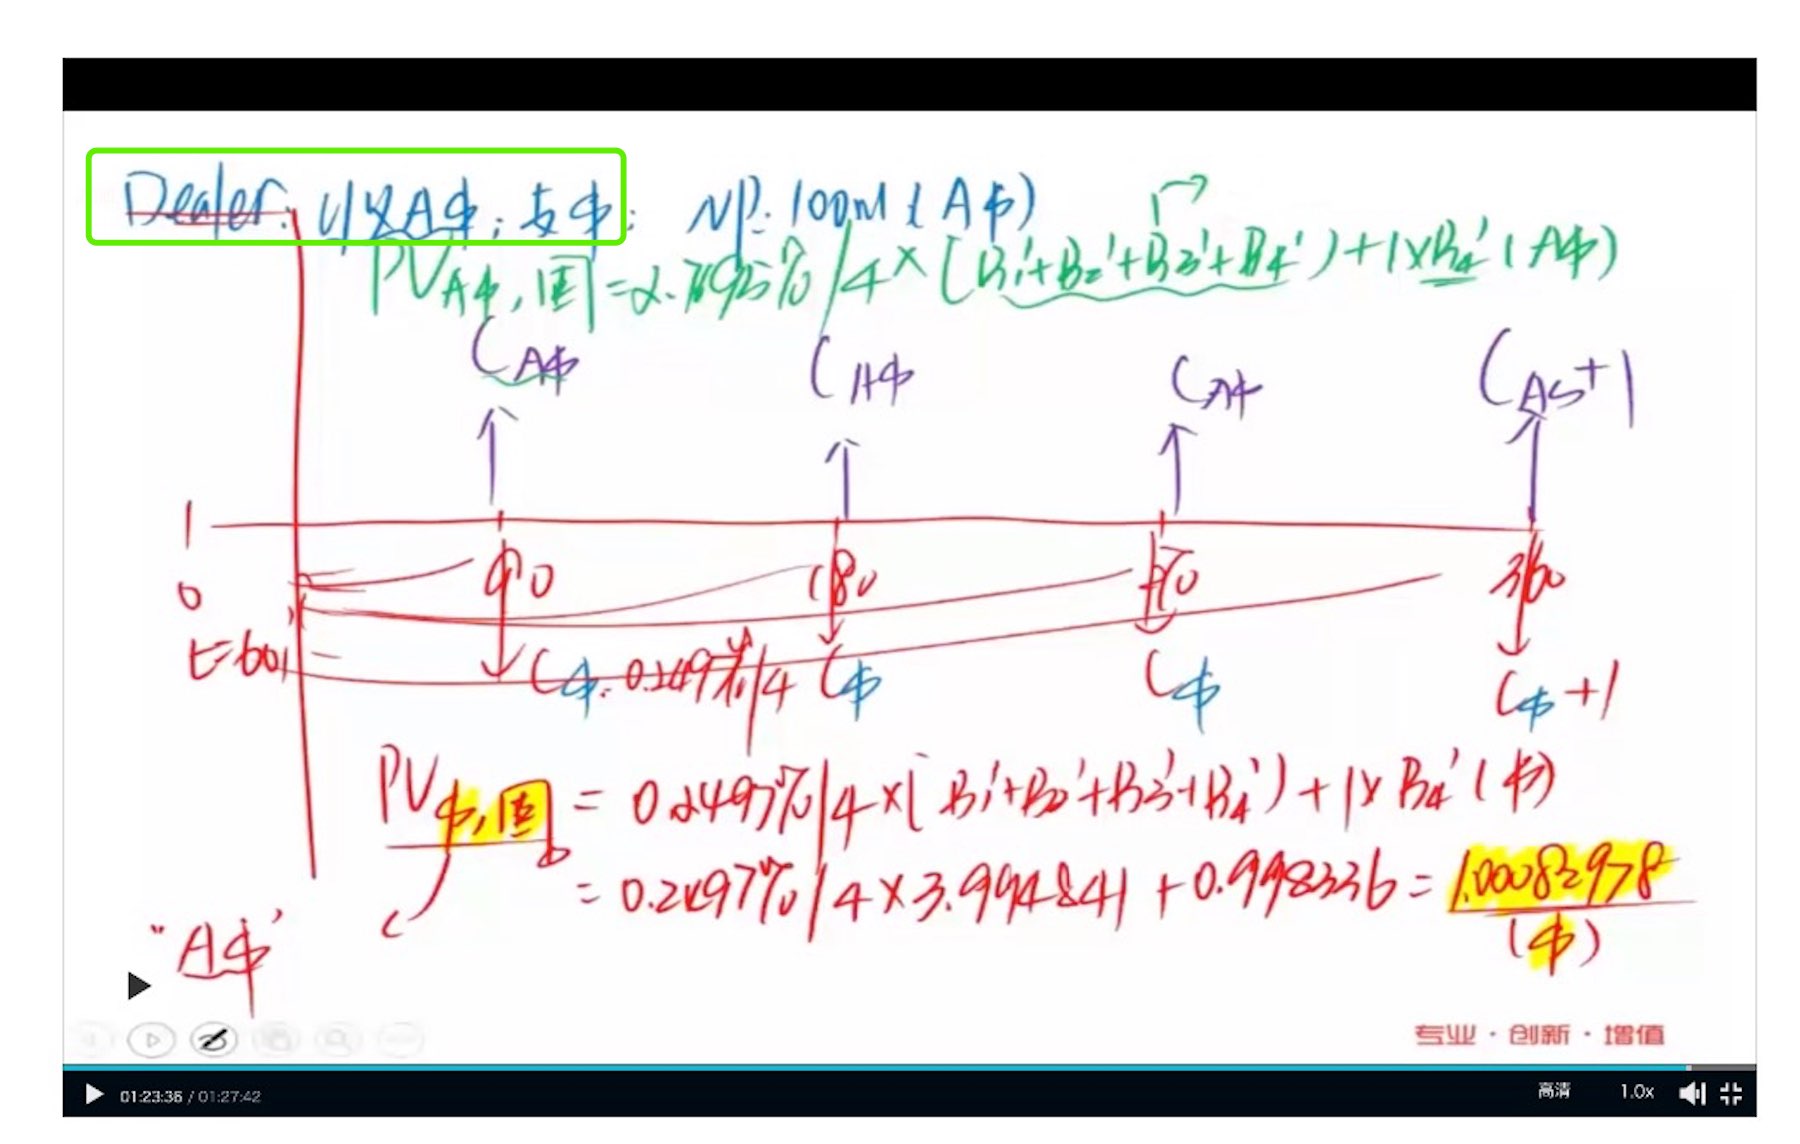 Dealer: 收A$; 支$; NP: 100M (A$)
PV A$,固 = 2.7695%/4 × (B1'+B2'+B3'+B4') + 1×B4' (A$)
C A$ C A$ C A$ C A$+1
1
0 90 180 270 360
t=60
C $: 0.2497%/4 C $ C $ C $+1
PV $,固 = 0.2497%/4 × (B1'+B2'+B3'+B4') + 1×B4' ($)
= 0.2497%/4 × 3.994841 + 0.998336 = 1.00082978
($)
"A$"
专业 · 创新 · 增值
01:23:36 / 01:27:42 高清 1.0x